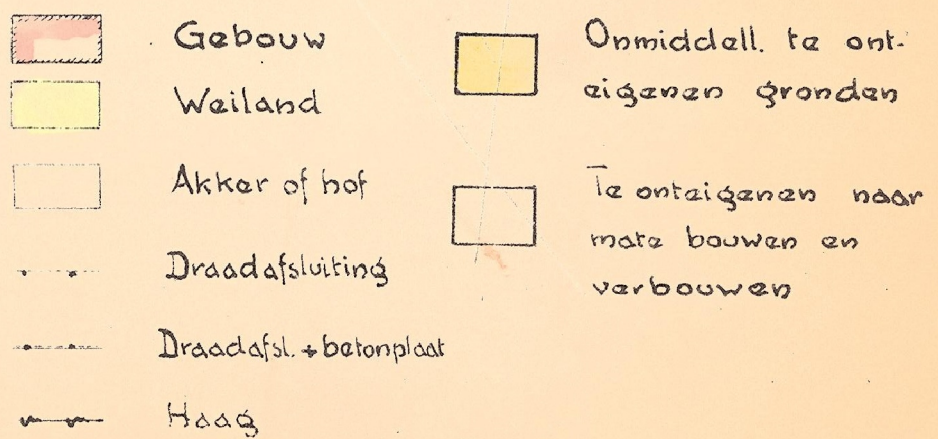 Gebouw
Weiland
Akker of hof
Draadafsluiting
Draadafsl. + betonplaat
Haag
Onmiddell. te ont-
eigenen gronden
Te onteigenen naar
mate bouwen en
verbouwen